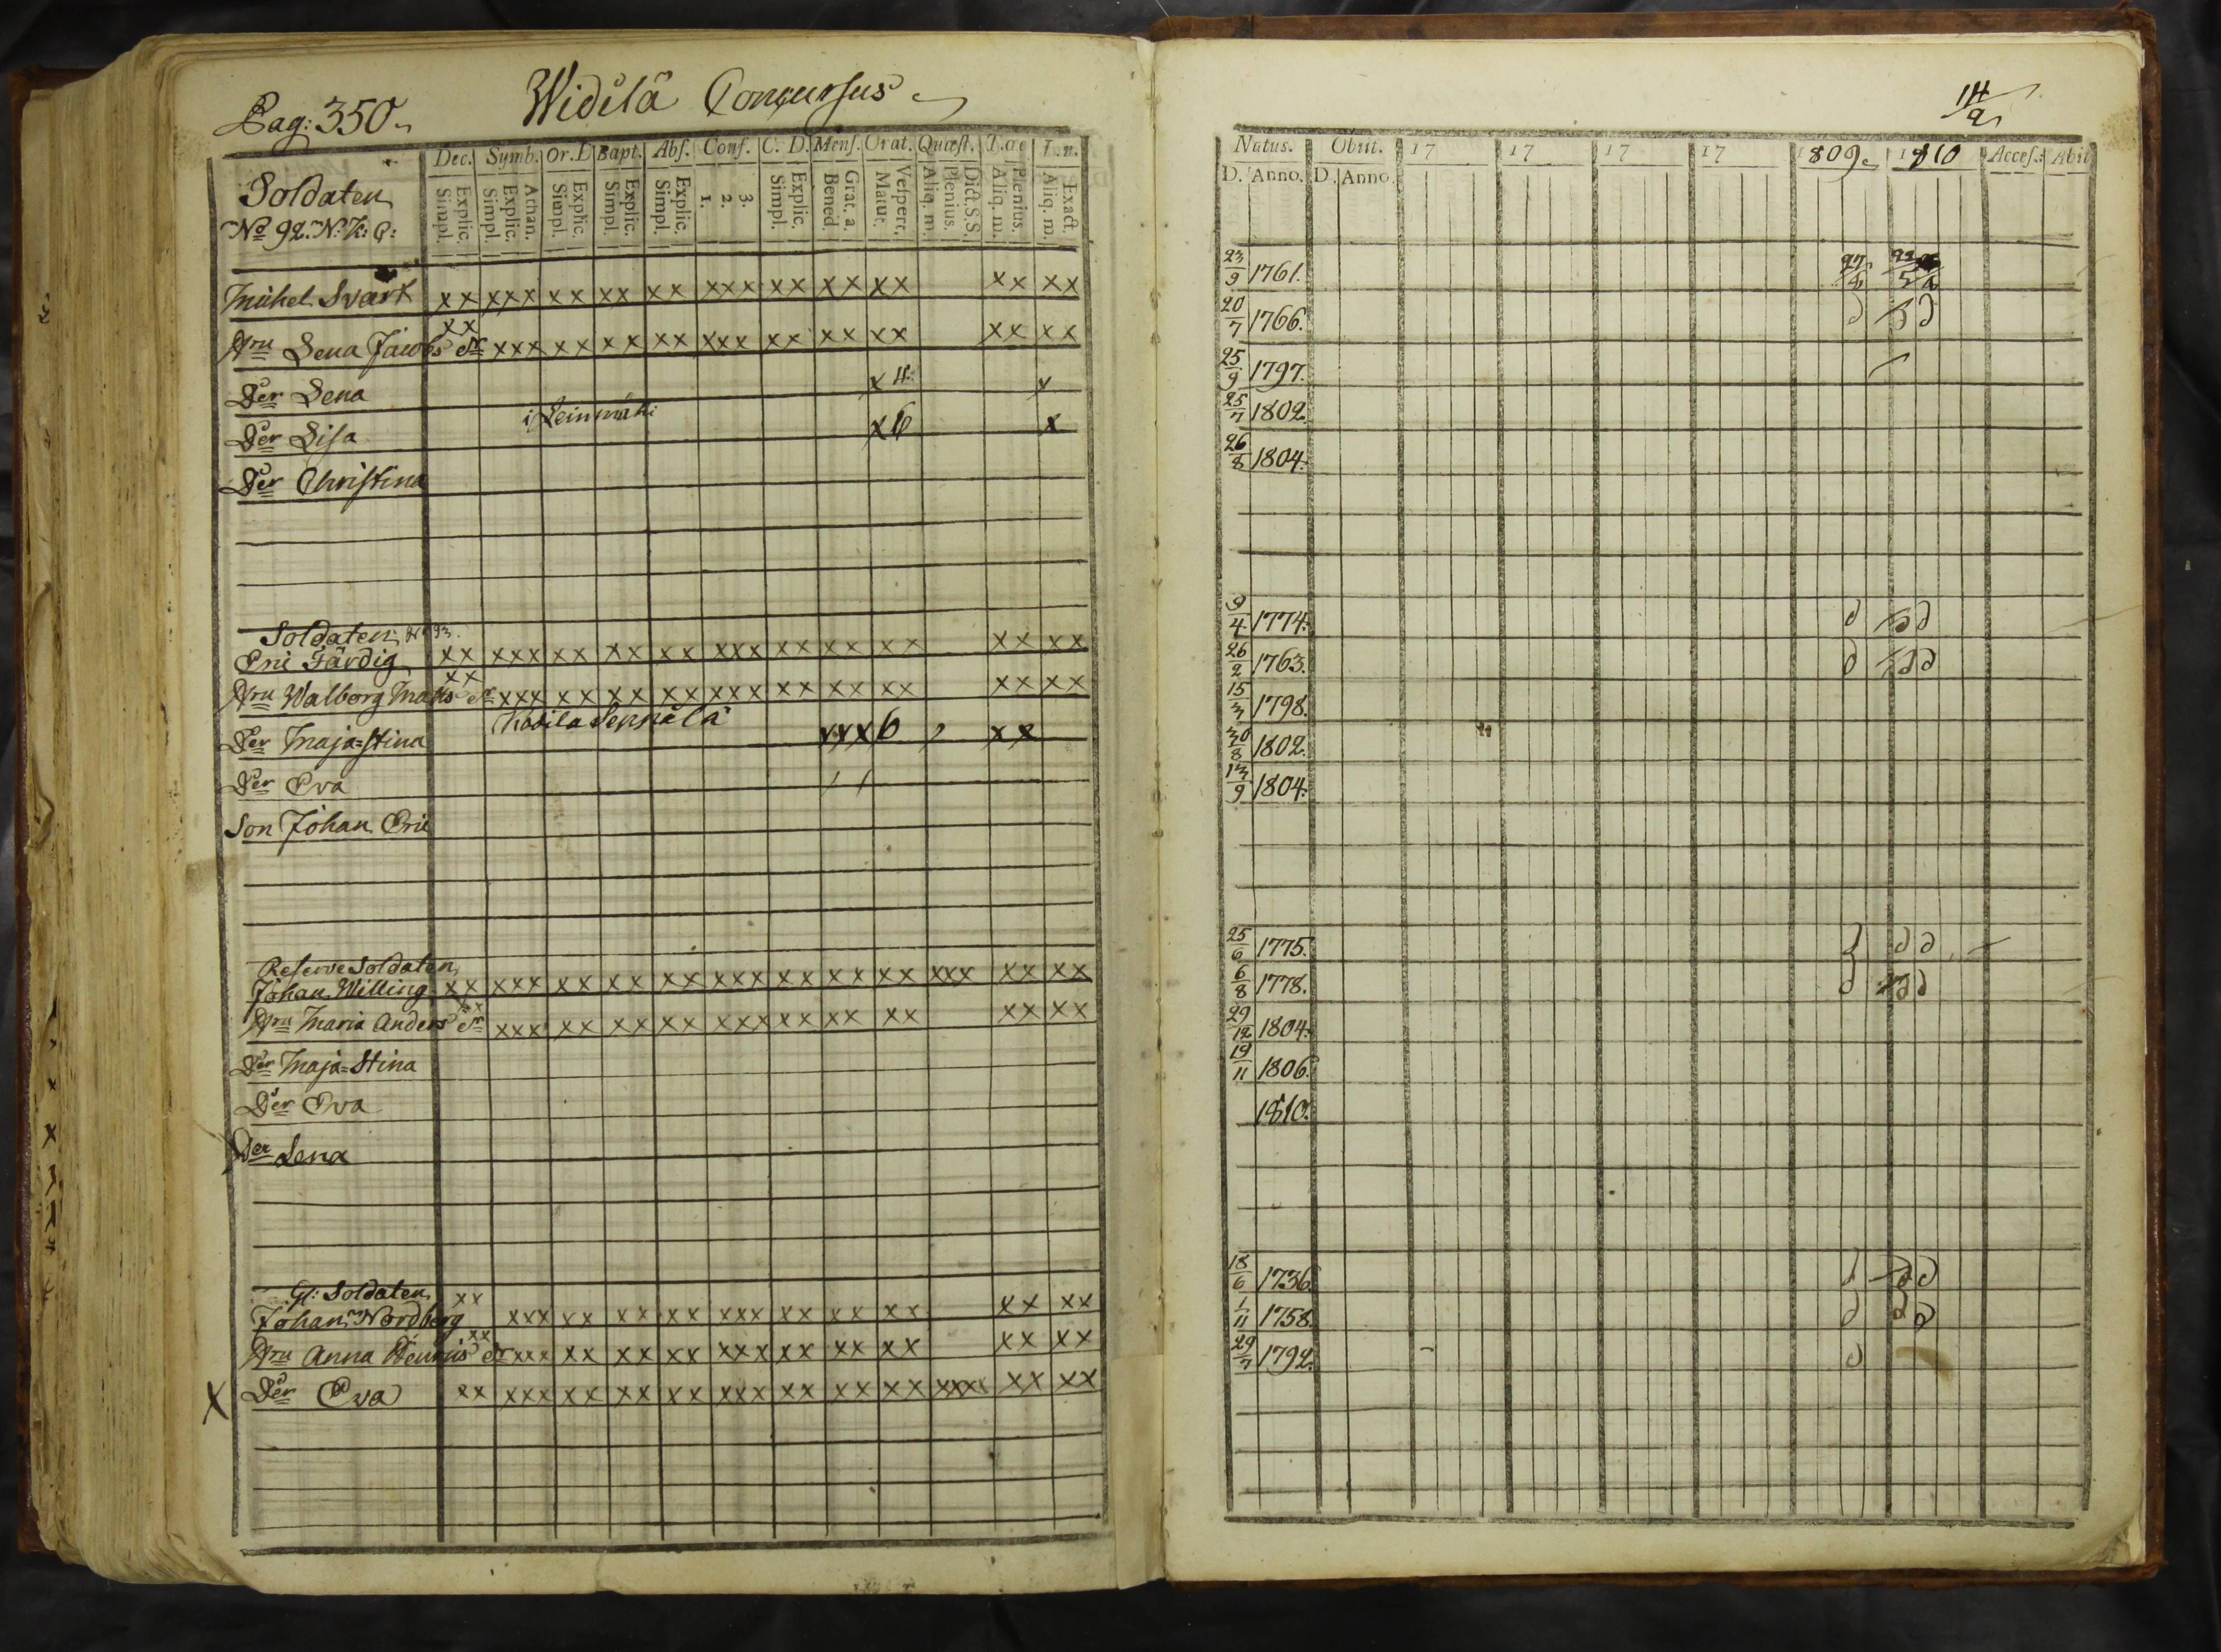 Pag: 350.
Widilä Concursus
Dec. Symb. Or. D Bapt. Abs. Conf. C. D. Mens. Orat. Quæst.
Explic. Simpl. Athan. Explic. Simpl. Explic. Simpl. Explic. Simpl. Explic. Simpl. 3. 2. 1. Explic. Simpl. Grat. a. Bened. Vesper. Matut. Dict. S.S. Plenius. Aliq. m. Plenius. Aliq. m. Exact. Aliq. m.
Soldaten
No 92.
Michel Svart xx xxx xx xx xx xxx xx xx xx xx xx
Hru Lena Jacobs dr xx xxx xx xx xx xxx xx xx xx xx xx
Der Lena x 4 x
Der Lisa x 6 x
Der Christina
Soldaten No 93.
Eric Färdig xx xxx xx xx xx xxx xx xx xx xx xx
Hru Walborg Matts dr xx xxx xx xx xx xxx xx xx xx xx xx
Der Maja=Stina xxx 6 xx
Der Eva
Son Johan Eric
Reserve Soldaten
Johan Willing xx xxx xx xx xx xxx xx xx xx xxx xx xx
Hru Maria Anders dr xx xxx xx xx xx xxx xx xx xx xx xx
Der Maja=Stina
Der Eva
Der Lena
Gl: Soldaten
Johan Nordberg xx xxx xx xx xx xxx xx xx xx xx xx
Hru Anna Henrics dr xx xxx xx xx xx xxx xx xx xx xx xx
X Der Eva xx xxx xx xx xx xxx xx xx xx xxx xx xx
Natus. Obiit. 17 17 17 17 1809. 1810 Acces. Abiit
D. Anno. D. Anno.
23/9 1761.
20/7 1766.
25/9 1797.
25/7 1802.
26/8 1804.
9/4 1774.
26/2 1763.
15/3 1798.
30/8 1802.
13/9 1804.
25/6 1775.
6/8 1778.
29/12 1804.
19/11 1806.
1810.
18/6 1736.
1/11 1758.
29/7 1792.